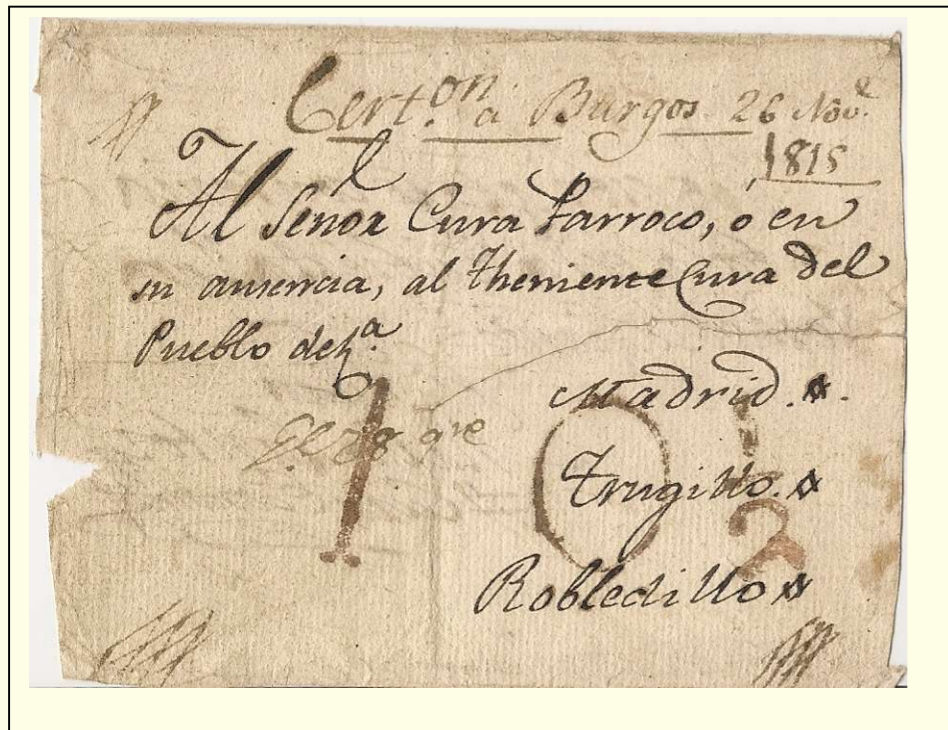 Cert.on a Burgos 26 Nov.e
1815
Al Señor Cura Parroco, o en
su ausencia, al Theniente Cura del
Pueblo de
Madrid.
Trugillo.
Robledillo
1 0 1/2